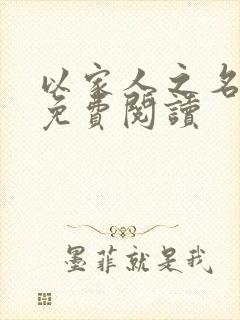 以家人之名
免費閱讀
墨菲就是我